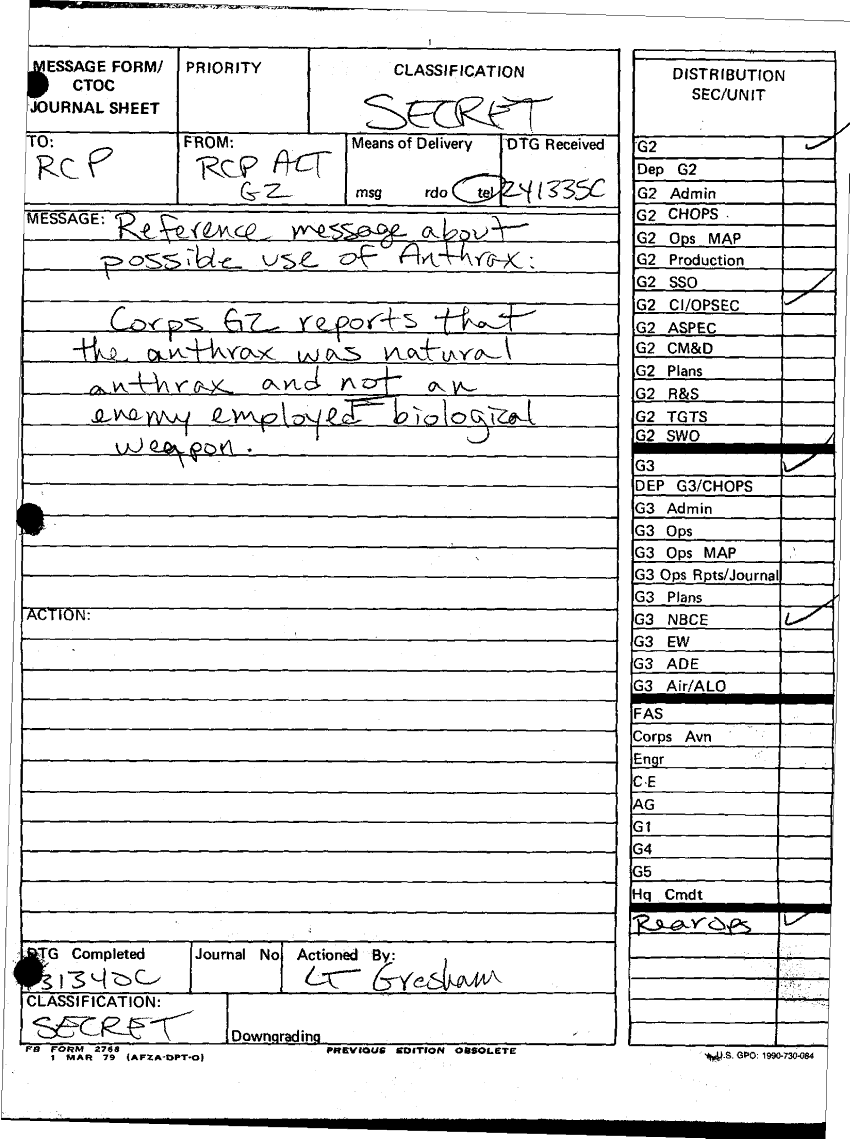 MESSAGE FORM/
CTOC
JOURNAL SHEET
PRIORITY
CLASSIFICATION
SECRET
TO:
RCP
FROM:
RCP ALT
G2
Means of Delivery
msg rdo tel
DTG Received
241335C
MESSAGE: Reference message about
possible use of Anthrax:
Corps G2 reports that
the anthrax was natural
anthrax and not an
enemy employed biological
weapon.
ACTION:
DTG Completed
31340C
Journal No
Actioned By:
LT Gresham
CLASSIFICATION:
SECRET
Downgrading
FB FORM 2768
1 MAR 79 (AFZA-DPT-O)
PREVIOUS EDITION OBSOLETE
DISTRIBUTION
SEC/UNIT
G2
Dep G2
G2 Admin
G2 CHOPS
G2 Ops MAP
G2 Production
G2 SSO
G2 CI/OPSEC
G2 ASPEC
G2 CM&D
G2 Plans
G2 R&S
G2 TGTS
G2 SWO
G3
DEP G3/CHOPS
G3 Admin
G3 Ops
G3 Ops MAP
G3 Ops Rpts/Journal
G3 Plans
G3 NBCE
G3 EW
G3 ADE
G3 Air/ALO
FAS
Corps Avn
Engr
C-E
AG
G1
G4
G5
Hq Cmdt
Rear Ops
U.S. GPO: 1990-730-084